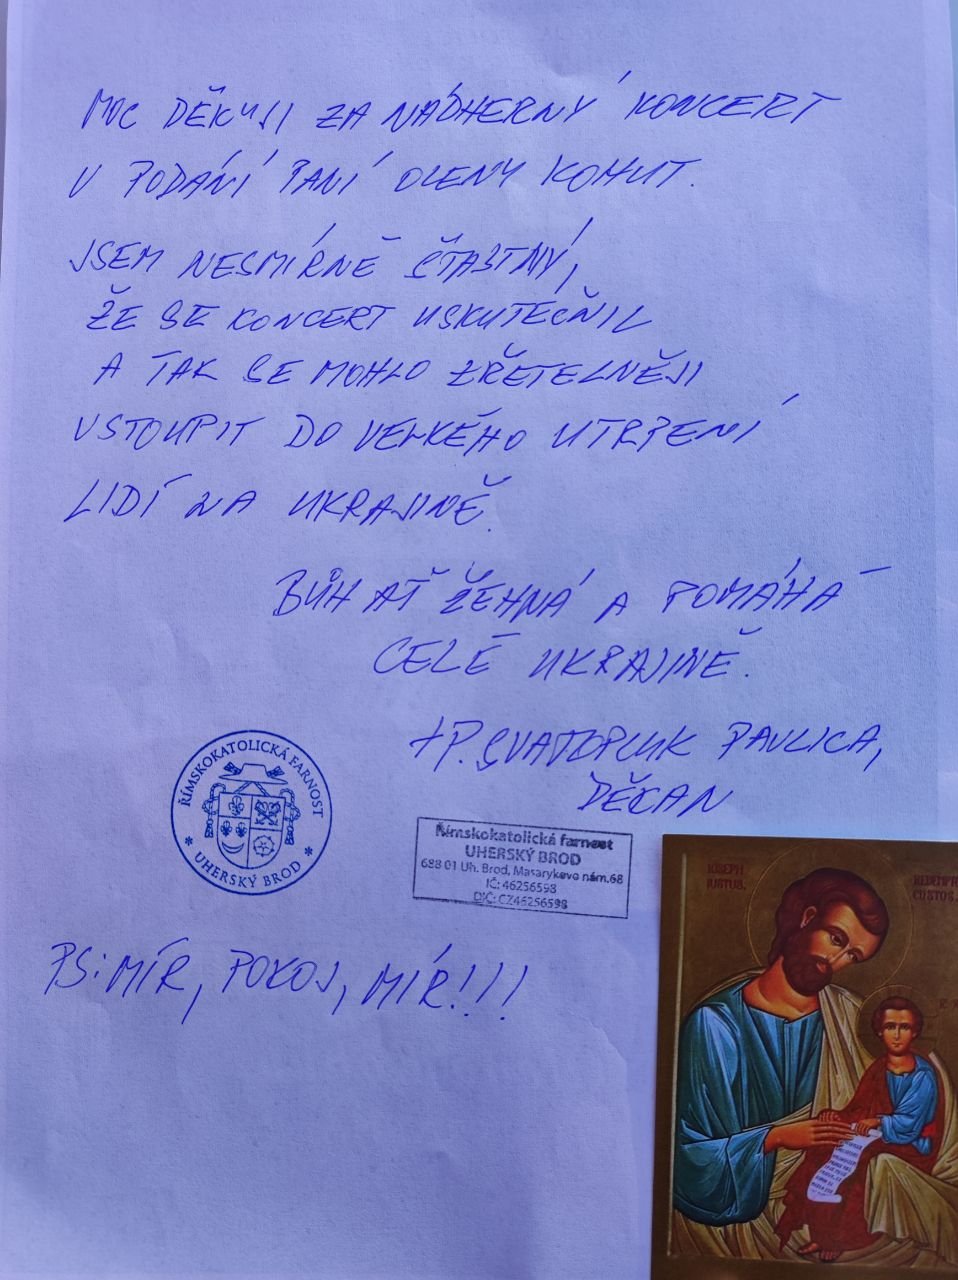 MOC DĚKUJI ZA NÁDHERNÝ KONCERT
V PODÁNÍ PANÍ OLENY KOHUT.
JSEM NESMÍRNĚ ŠŤASTNÝ,
ŽE SE KONCERT USKUTEČNIL
A TAK SE MOHLO ZŘETELNĚJI
VSTOUPIT DO VELKÉHO UTRPENÍ
LIDÍ NA UKRAJINĚ.
BŮH AŤ ŽEHNÁ A POMÁHÁ
CELÉ UKRAJINĚ.
+P. SVATOPLUK PAVLICA,
DĚKAN
ŘÍMSKOKATOLICKÁ FARNOST
* UHERSKÝ BROD *
Římskokatolická farnost
UHERSKÝ BROD
688 01 Uh. Brod, Masarykovo nám.68
IČ: 46256598
DIČ: CZ46256598
PS: MÍR, POKOJ, MÍR!!!
IOSEPH
IUSTUS,
CUSTOS